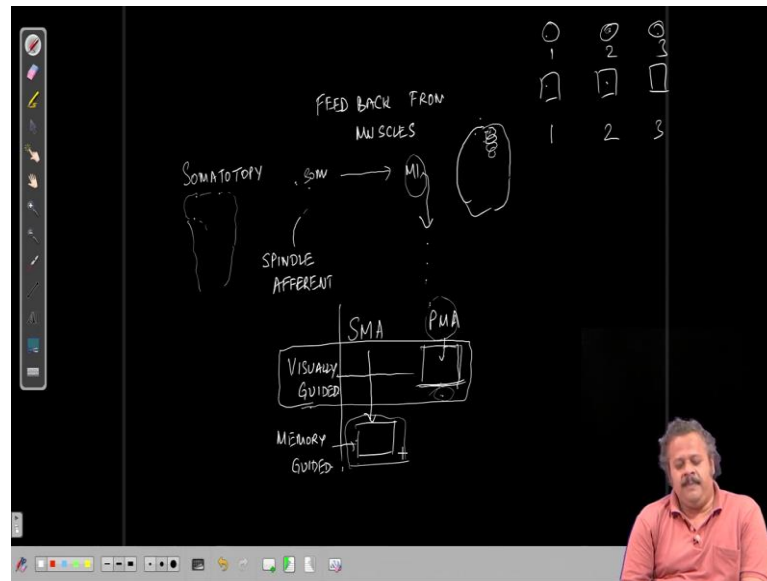 1 2 3
1 2 3
FEED BACK FROM
MUSCLES
SOMATOTOPY
SOM
M1
SPINDLE
AFFERENT
SMA PMA
VISUALLY
GUIDED
MEMORY
GUIDED